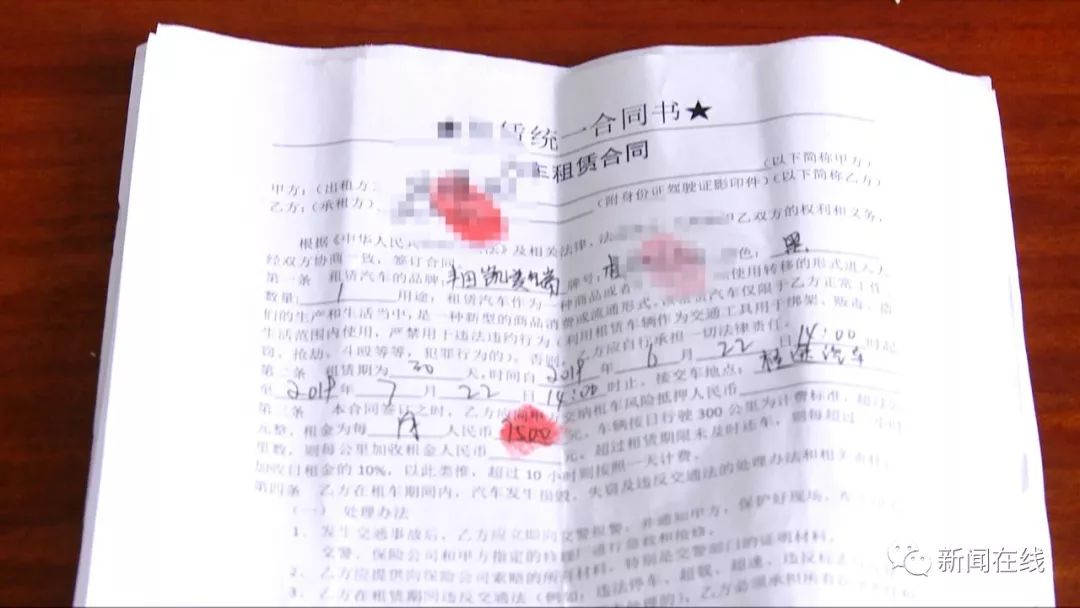 赁统一合同书★
车租赁合同
甲方:(出租方 (以下简称甲方)
乙方:(承租方) (附身份证驾驶证影印件)(以下简称乙方)
根据《中华人民共 法》及相关法律、法 甲乙双方的权利和义务,
经双方协商一致,签订合同
第一条 租赁汽车的品牌: 丰田 牌号: 色: 黑
数量: 1 用途:租赁汽车作为一种商品或者 使用转移的形式进入人
们的生产和生活当中,是一种新型的商品消费或流通形式。该租赁汽车仅限于乙方正常工作
生活范围内使用,严禁用于违法违约行为(利用租赁车辆作为交通工具用于绑架、贩毒、盗
窃、抢劫、斗殴等等,犯罪行为的)。否则,乙方应自行承担一切法律责任。
第二条 租赁期为 30 天,时间自 2019 年 6 月 22 日 14:00 时起
至 2019 年 7 月 22 日 14:00 时止,接交车地点: 汽车
第三条 本合同签订之时,乙方应向甲方交纳租车风险抵押人民币
元整,租金为每 月 人民币 1500 元。车辆按日行驶300公里为计费标准,超过公
里数,则每公里加收租金人民币 元。超过租赁期限未及时还车,则每超过一小时
加收日租金的10%,以此类推,超过10小时则按照一天计费。
第四条 乙方在租车期间内,汽车发生损毁、失窃及违反交通法的处理办法和相关责任
(一) 处理办法
1、 发生交通事故后,乙方应立即向交警报警,并通知甲方,保护好现场,
交警、保险公司和甲方指定的修理厂进行急救和抢修。
2、 乙方应提供向保险公司索赔的所有材料,特别是交警部门的证明材料。
3、 乙方在租赁期间违反交通法(例如:违法停车、超载、超速、违反标
处理的),乙方必须承担所有
新闻在线